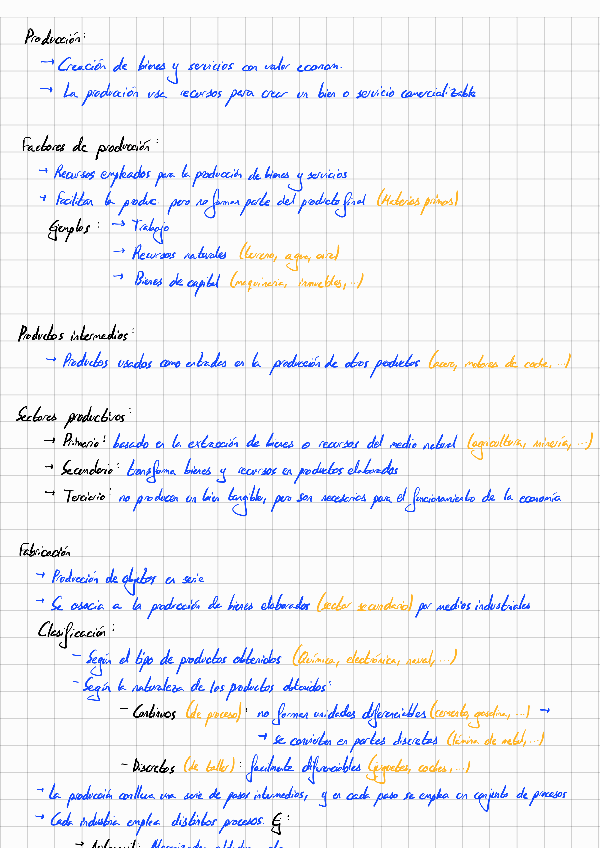 Producción:
→ Creación de bienes y servicios con valor econom.
→ La producción usa recursos para crear un bien o servicio comercializable
Factores de producción:
→ Recursos empleados para la producción de bienes y servicios
→ Facilitan la produc pero no forman parte del producto final (Materias primas)
Ejemplos: → Trabajo
→ Recursos naturales (terreno, agua, aire)
→ Bienes de capital (maquinaria, inmuebles, ..)
Productos intermedios:
→ Productos usados como entradas en la producción de otros productos (acero, motores de coche, ..)
Sectores productivos:
→ Primario: basado en la extracción de bienes o recursos del medio natural (agricultura, minería, ...)
→ Secundario: transforma bienes y recursos en productos elaborados
→ Terciario: no producen un bien tangible, pero son necesarios para el funcionamiento de la economía
Fabricación
→ Producción de objetos en serie
→ Se asocia a la producción de bienes elaborados (sector secundario) por medios industriales
Clasificación:
- Según el tipo de productos obtenidos (Química, electrónica, naval, ...)
- Según la naturaleza de los productos obtenidos:
- Continuos (de proceso): no forman unidades diferenciables (cemento, gasolina, ...) →
→ se convierten en partes discretas (lámina de metal, ...)
- Discretos (de taller): facilmente diferenciables (juguetes, coches, ...)
→ La producción conlleva una serie de pasos intermedios, y en cada paso se emplea un conjunto de procesos
→ Cada industria emplea distintos procesos. Ej: